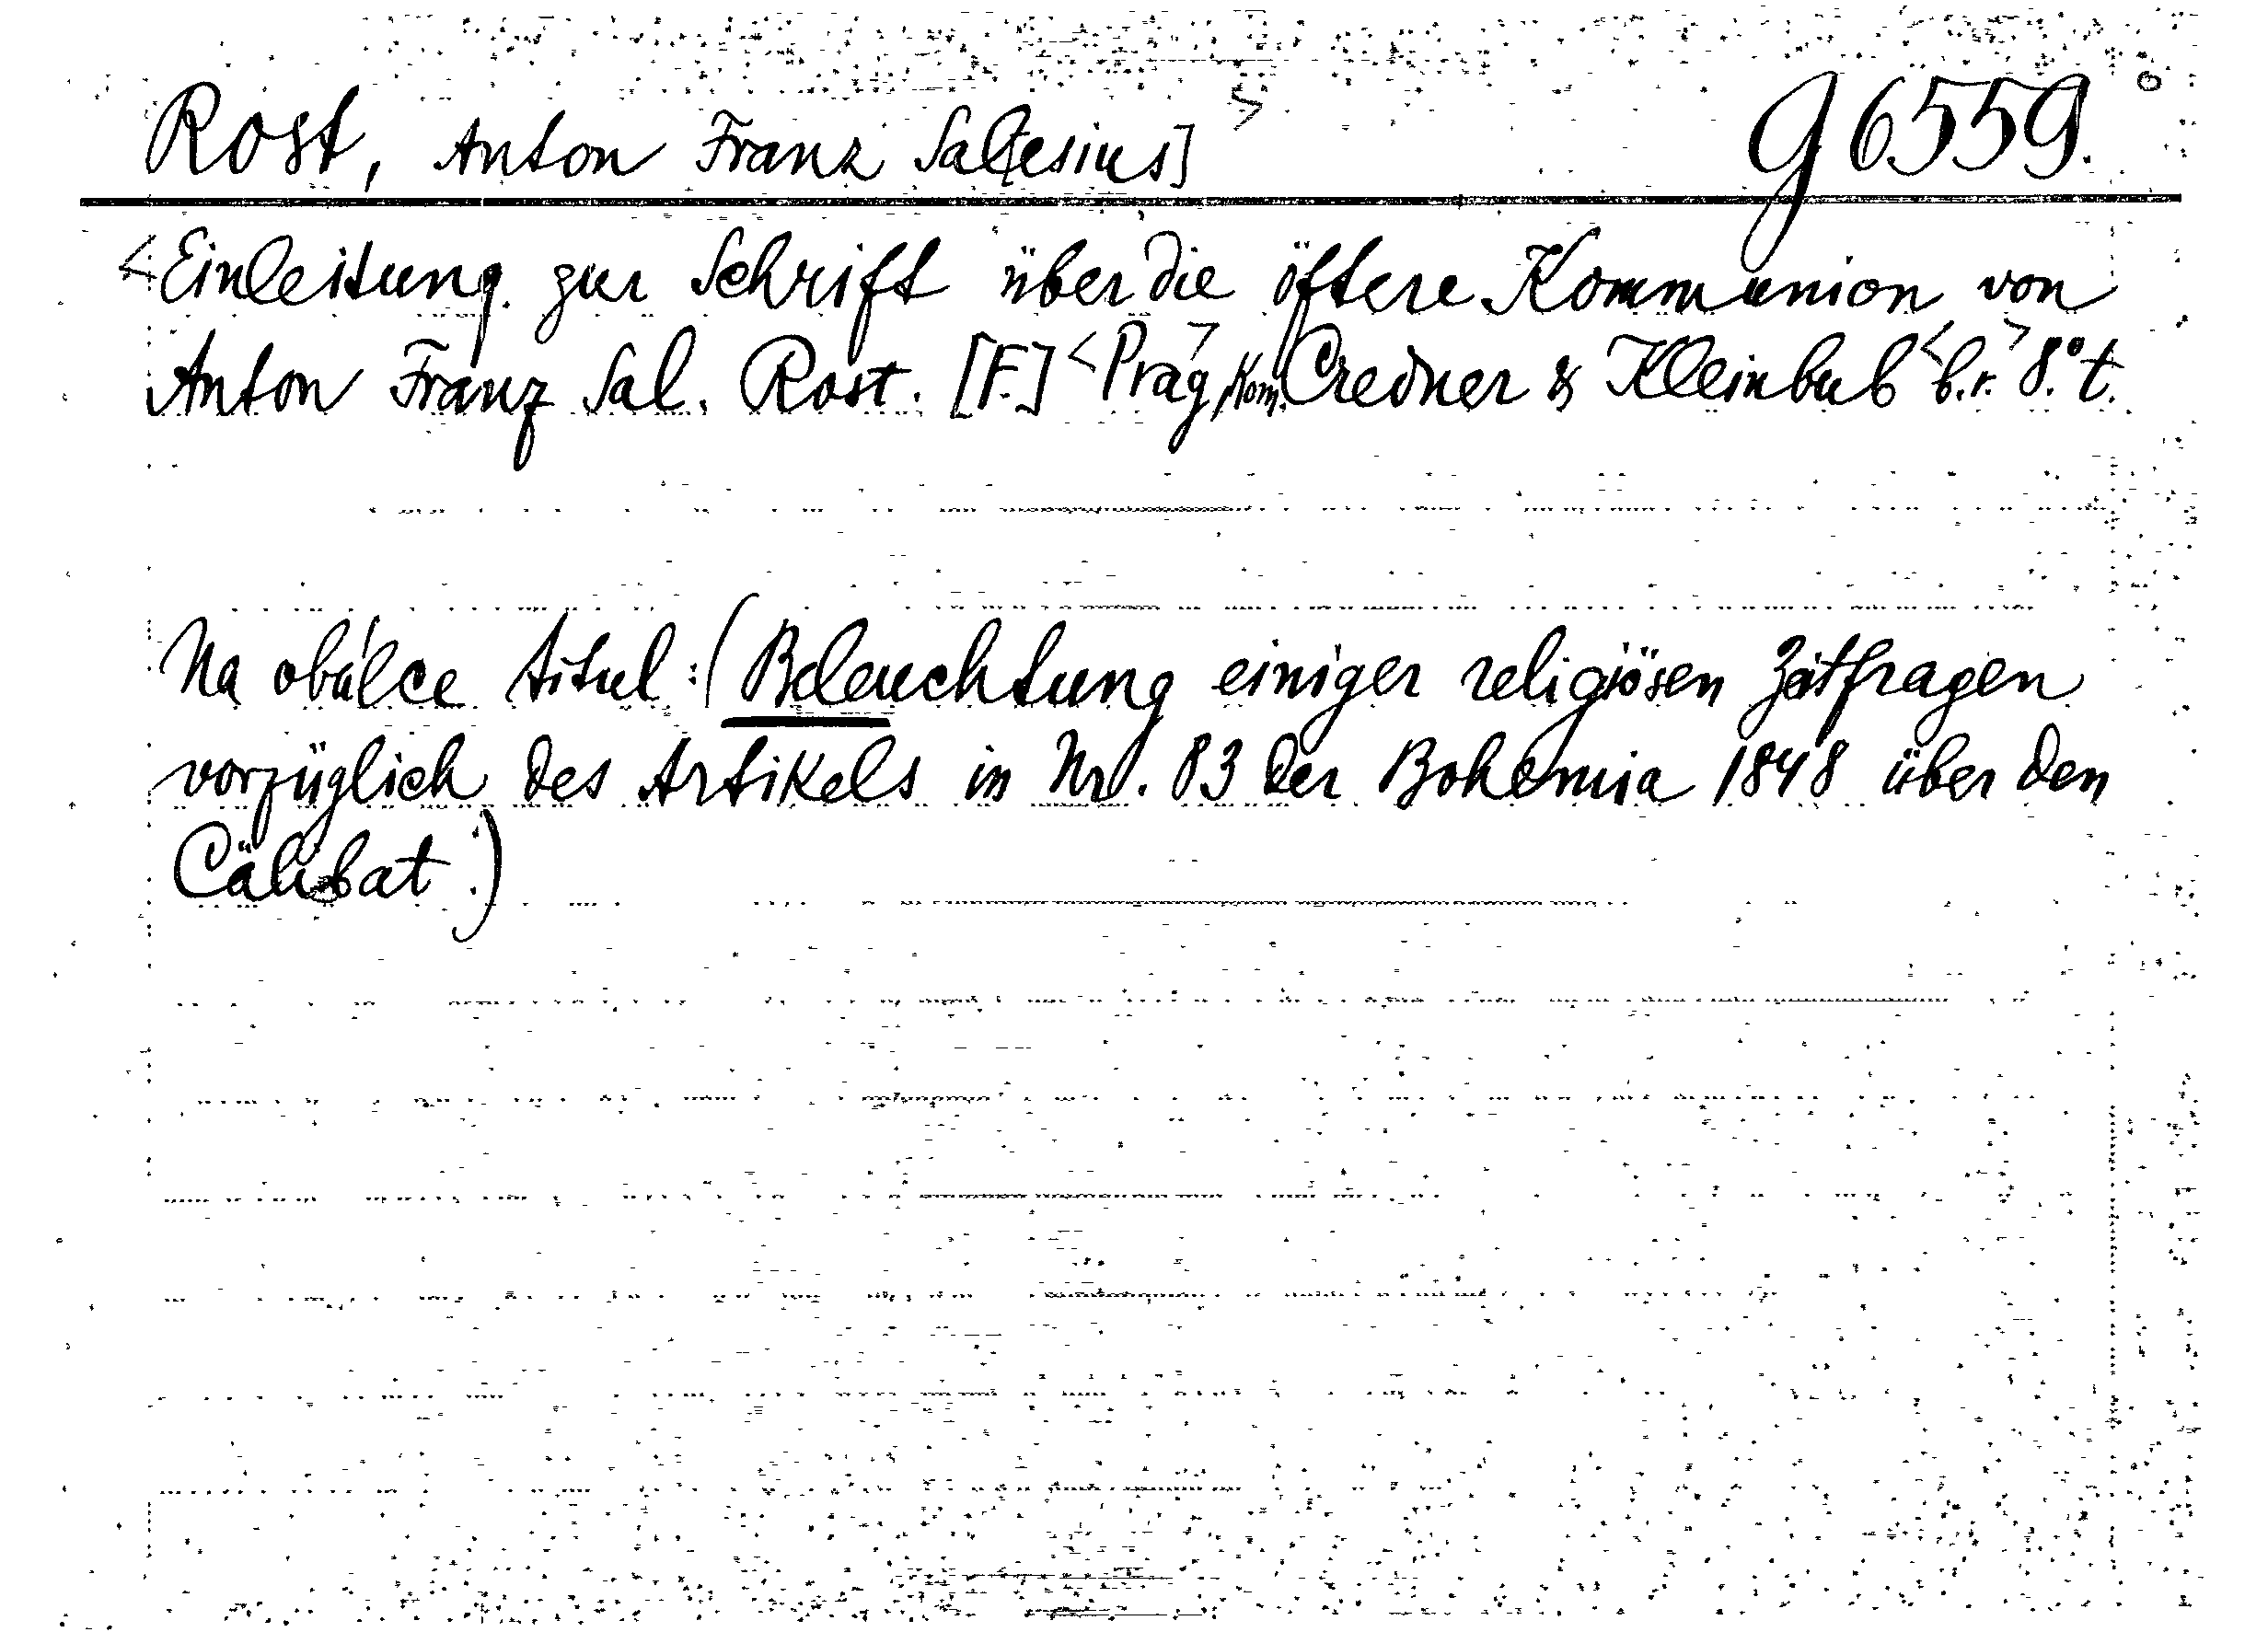 Rost, Anton Franz Sal[esius] > g 6559.
<Einleitung zur Schrift über die öftere Kommunion von
Anton Franz Sal. Rost. [F.] <Prag,> Kom. Credner & Kleinbub <b.r.> 8° t.
Na obálce titul: (Beleuchtung einiger religiösen Zeitfragen
vorzüglich des Artikels in Nro. 83 der Bohemia 1848 über den
Cälibat.)